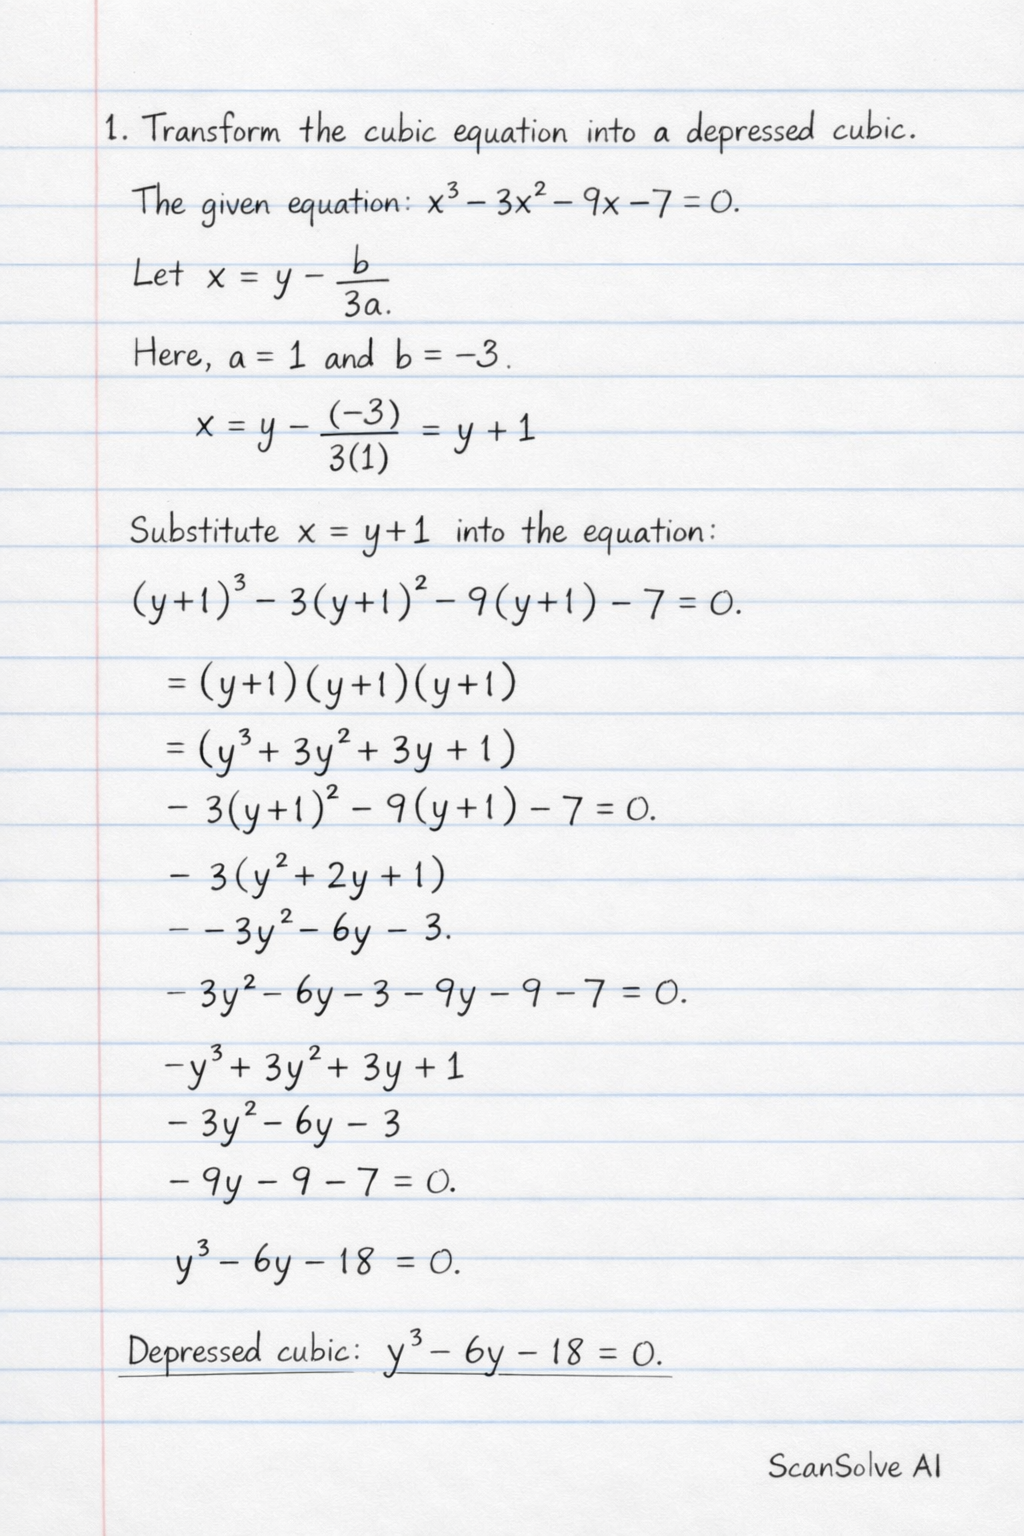 1. Transform the cubic equation into a depressed cubic.
The given equation: x³ – 3x² – 9x – 7 = 0.
Let x = y – b/3a.
Here, a = 1 and b = –3.
x = y – (–3)/3(1) = y + 1
Substitute x = y+1 into the equation:
(y+1)³ – 3(y+1)² – 9(y+1) – 7 = 0.
= (y+1)(y+1)(y+1)
= (y³ + 3y² + 3y + 1)
– 3(y+1)² – 9(y+1) – 7 = 0.
– 3(y² + 2y + 1)
– – 3y² – 6y – 3.
– 3y² – 6y – 3 – 9y – 9 – 7 = 0.
–y³ + 3y² + 3y + 1
– 3y² – 6y – 3
– 9y – 9 – 7 = 0.
y³ – 6y – 18 = 0.
Depressed cubic: y³ – 6y – 18 = 0.
ScanSolve AI